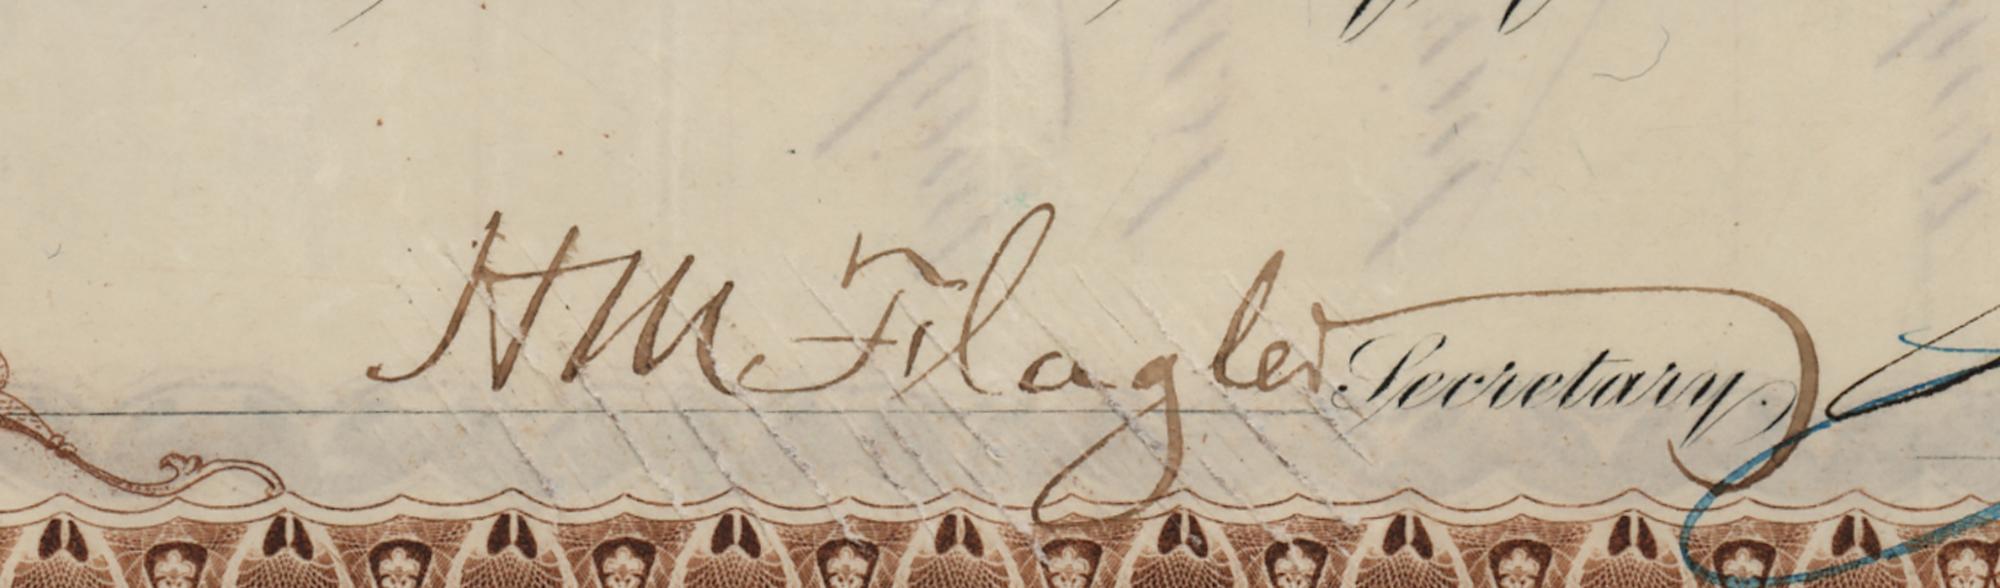 H M Flagler Secretary.